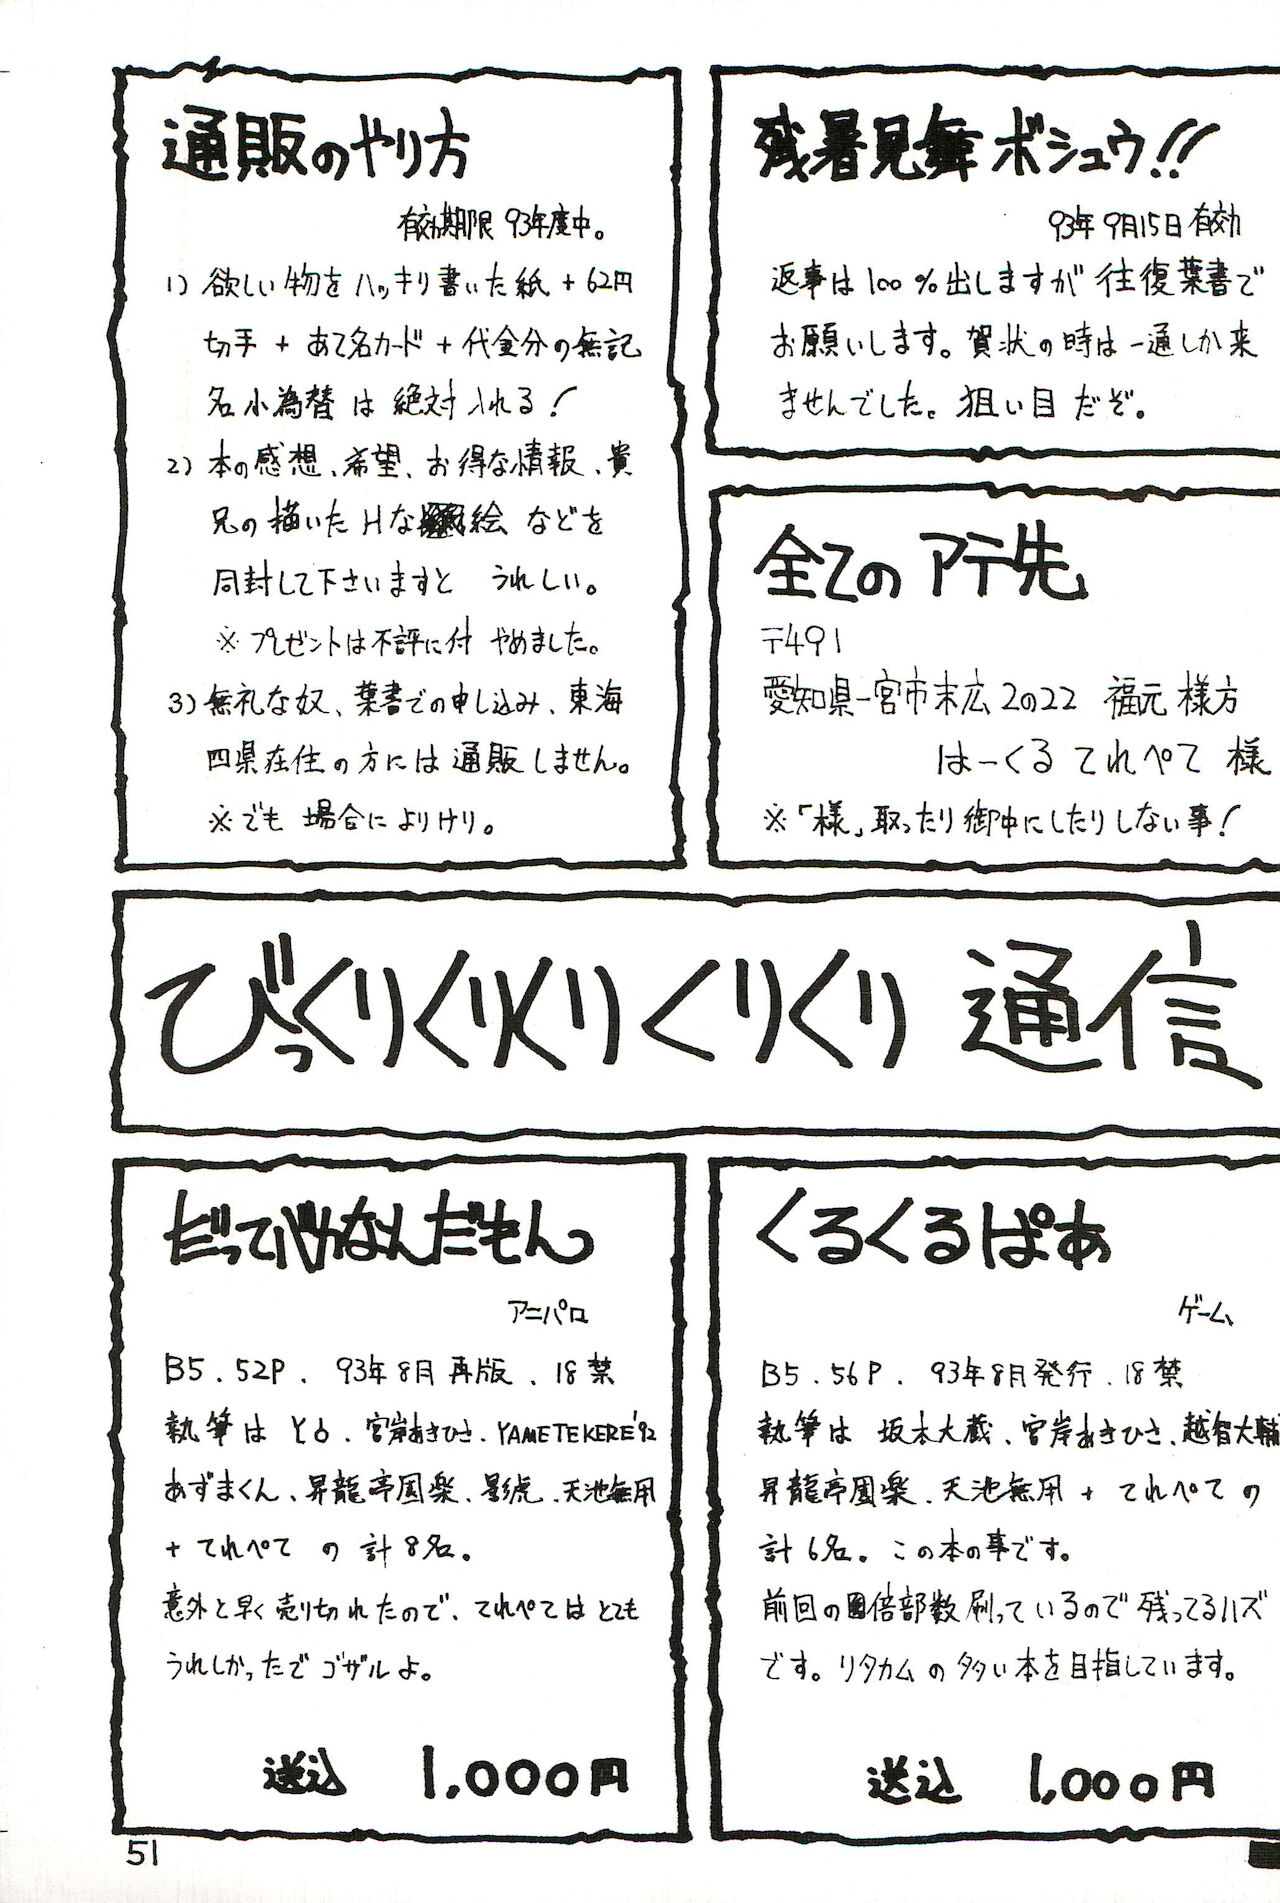 通販のやり方
有効期限 93年度中。
1) 欲しい物をハッキリ書いた紙 + 62円
切手 + あて名カード + 代金分の無記
名小為替 は 絶対 入れる！
2) 本の感想、希望、お得な情報、貴
兄の描いた Hな絵 などを
同封して下さいますと うれしい。
※ プレゼントは不評に付 やめました。
3) 無礼な奴、葉書での申し込み、東海
四県在住の方には 通販しません。
※でも 場合によりけり。
残暑見舞 ボシュウ!!
93年 9月15日有効
返事は 100%出しますが 往復葉書で
お願いします。賀状の時は一通しか来
ませんでした。狙い目だぞ。
全ての アテ先
〒491
愛知県一宮市末広2の22 福元 様方
はーくる てれぺて 様
※「様」取ったり御中にしたりしない事！
びっくりくりくりくりくり 通信
だってバカなんだもんっ
アニパロ
B5. 52P. 93年8月 再版. 18禁
執筆は とら. 宮岸あきひさ. YAMETEKERE'92
あずまくん、昇龍亭園楽、影虎、天池無用
+ てれぺて の 計 8名。
意外と早く売り切れたので、てれぺてはとても
うれしかったで ゴザルよ。
送込 1,000円
くるくるぱあ
ゲーム
B5. 56P. 93年8月発行. 18禁
執筆は 坂本大蔵、宮岸あきひさ、越智大輔
昇龍亭園楽、天池無用 + てれぺての
計6名。この本の事です。
前回の倍部数刷っているので残ってるハズ
です。リタカムの多い本を目指しています。
送込 1,000円
51